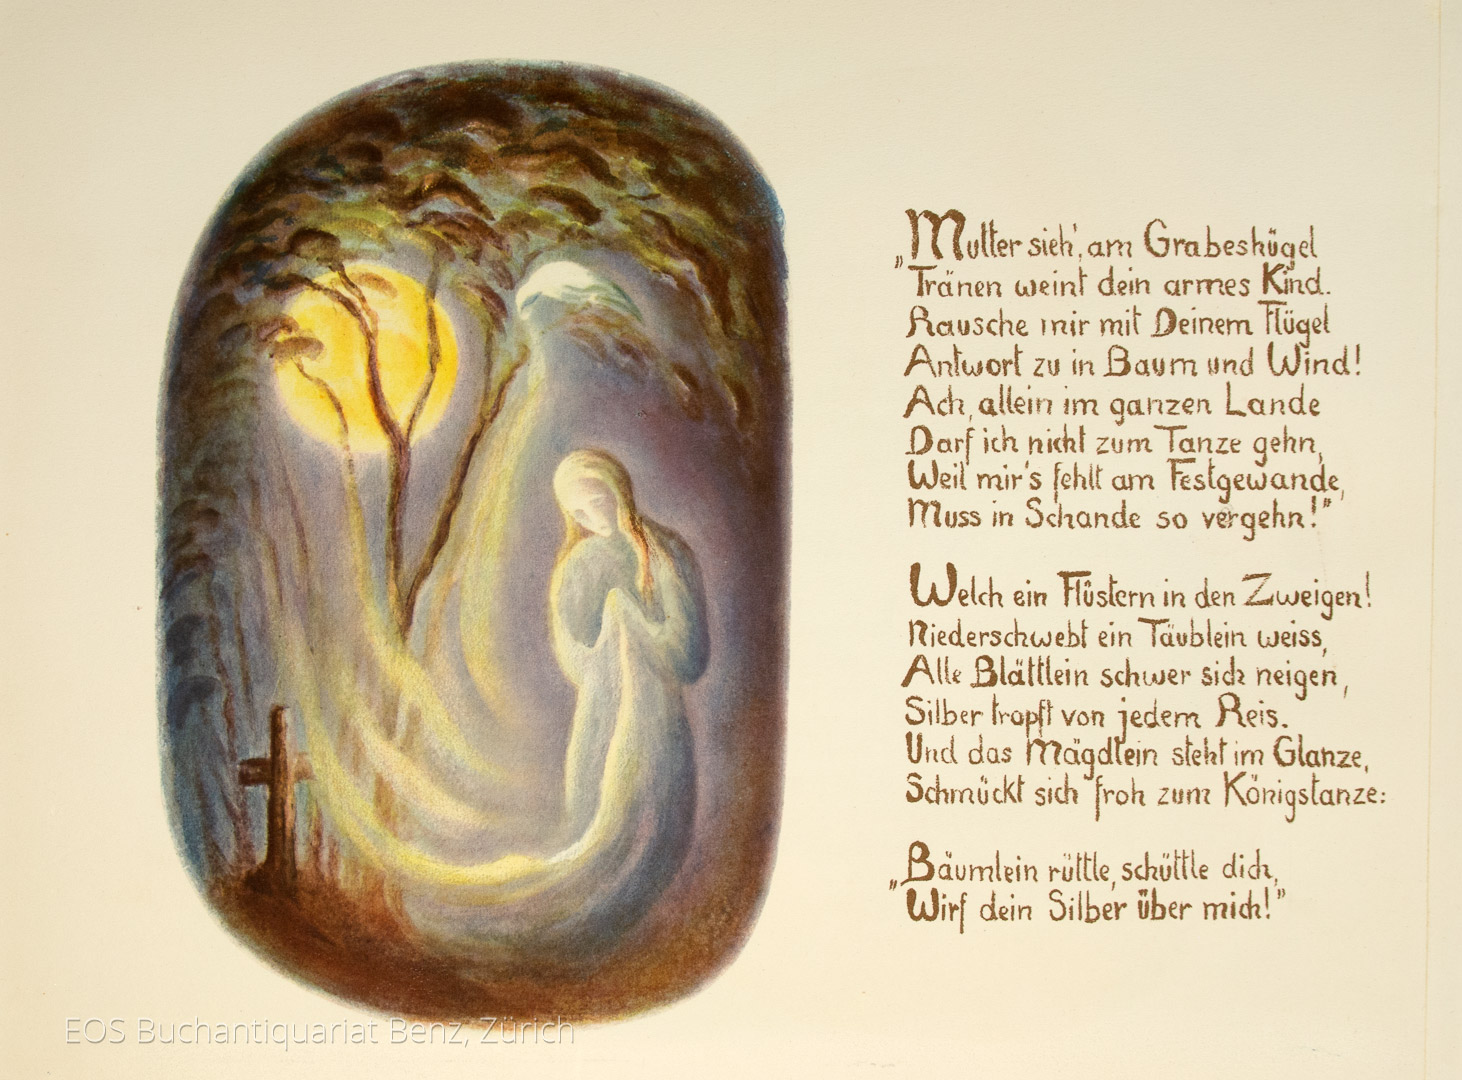 „Mutter sieh', am Grabeshügel
Tränen weint dein armes Kind.
Rausche mir mit Deinem Flügel
Antwort zu in Baum und Wind!
Ach, allein im ganzen Lande
Darf ich nicht zum Tanze gehn,
Weil mir's fehlt am Festgewande,
Muss in Schande so vergehn!"
Welch ein Flüstern in den Zweigen!
Niederschwebt ein Täublein weiss,
Alle Blättlein schwer sich neigen,
Silber tropft von jedem Reis.
Und das Mägdlein steht im Glanze,
Schmückt sich froh zum Königstanze:
„Bäumlein rüttle, schüttle dich,
Wirf dein Silber über mich!"
EOS Buchantiquariat Benz, Zürich